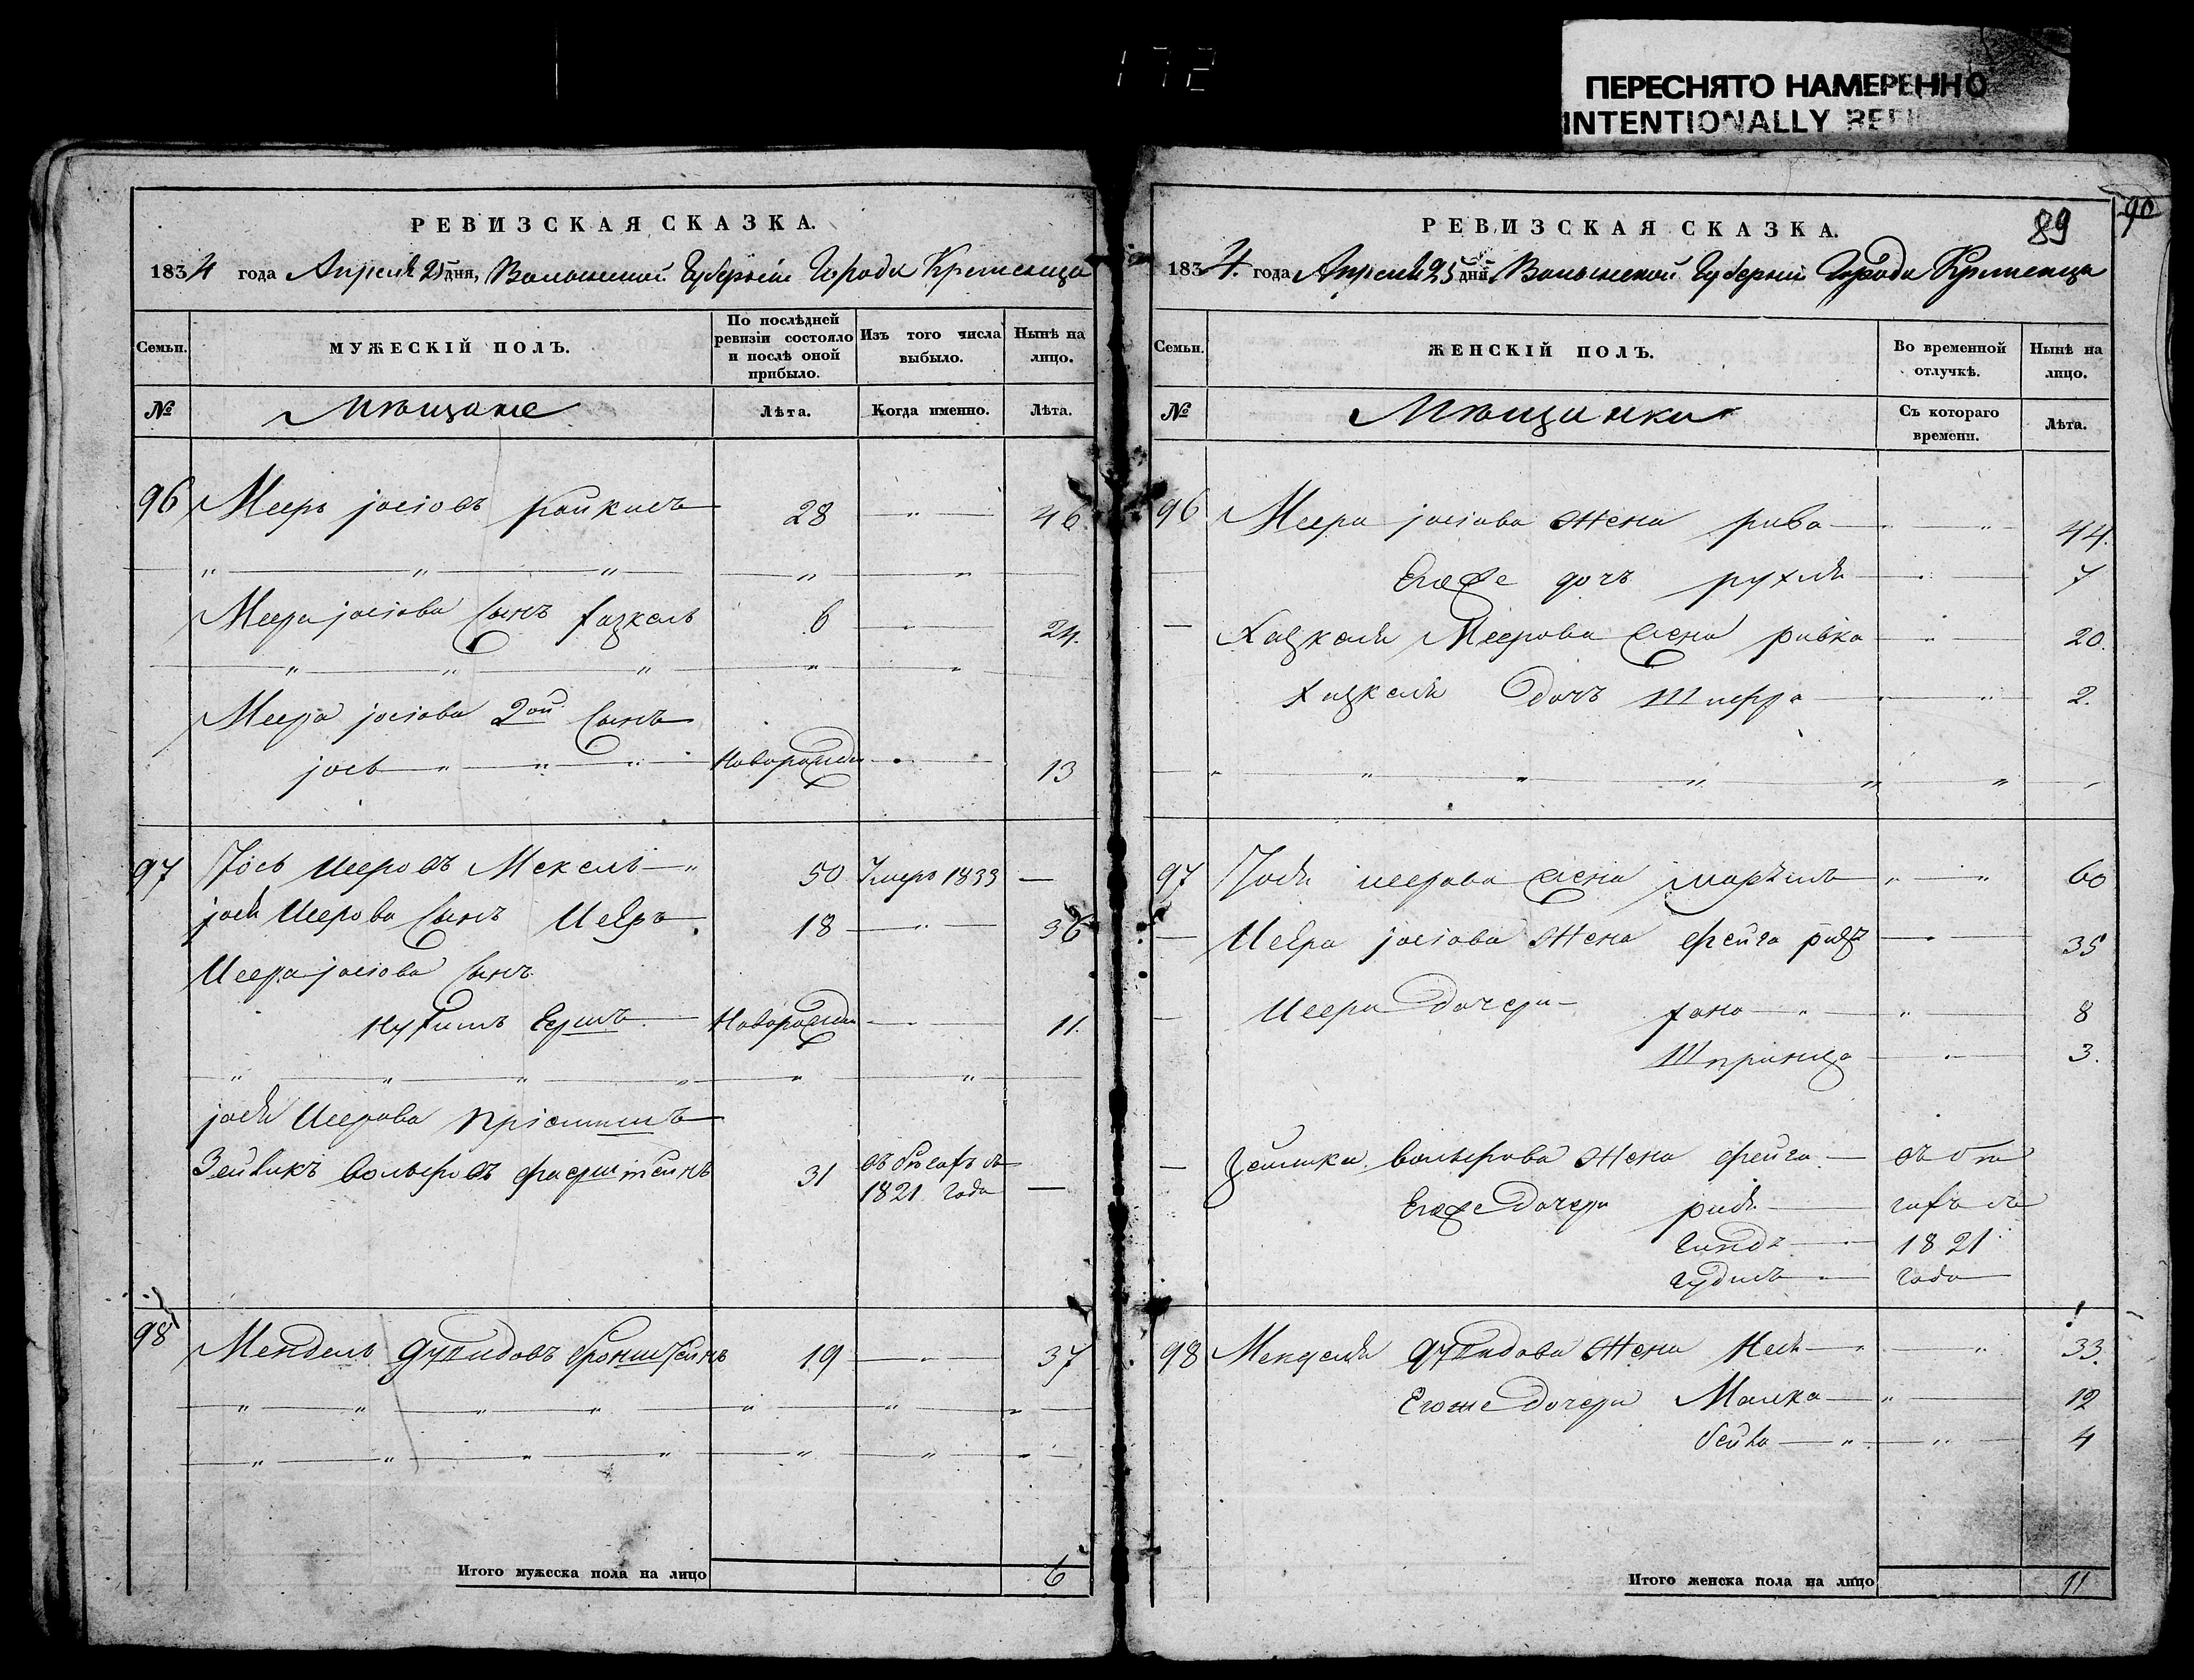 172
ПЕРЕСНЯТО НАМЕРЕННО
INTENTIONALLY
РЕВИЗСКАЯ СКАЗКА.
1834 года Апреля 25 дня, Волынской Губерніи Города Кременца
Семьи. МУЖЕСКІЙ ПОЛЪ. По послѣдней ревизіи состояло и послѣ оной прибыло. Изъ того числа выбыло. Нынѣ на лицо.
№ Мѣщане Лѣта. Когда именно. Лѣта.
96 Мееръ јосіовъ 28 — " — 46.
" — " — " — " — "
Меера јосіова Сынъ хацкель 6 — " — 24.
" — " — " — " — "
Меера јосіова 2ой Сынъ
јось — " — " — " — Новорожден — " — 13
97 Јось Иеровъ Мекель — " 50 Умеръ 1833 —
јося Иерова Сынъ Иеера 18 — " — 36
Иеера јосіова Сынъ
Нухимъ Гершъ — Новорожден — " — 11.
" — " — " — " — " — "
јося Иерова пріёмышъ
Зейликъ Вольфовъ 31 въ бѣгахъ съ 1821 года —
98 Мендель Дувидовъ Бронштейнъ 19 — " — 37
" — " — " — " — " — " — "
" — " — " — " — " — " — "
Итого мужеска пола на лицо 6
90
89
РЕВИЗСКАЯ СКАЗКА.
1834. года Апреля 25 дня Волынской Губерніи Города Кременца
Семьи. ЖЕНСКІЙ ПОЛЪ. Во временной отлучкѣ. Нынѣ на лицо.
№ Мѣщанки Съ котораго времени. Лѣта.
96 Меера јосіова жена рива — " — " 44.
Егоже дочь рухля — " — 7
— Хацкеля Меерова жена ривка — " — 20.
Хацкеля дочь Шифра — " — " 2.
— " — " — " — " — " — " —
97 Јося иеерова жена — " — " 60
— Иеера јосіова жена фейга — " — 35
— Иеера дочери — хана — " — " 8
Шпринца — " — 3.
— Зейлика вольфова жена фейга — въ бѣ
Егоже дочери рися — гахъ съ
1821
года
98 Менделя Дувидова жена Неся — " — " 33.
Егоже дочери Малка — " — 12
бейла — " — " — 4
Итого женска пола на лицо 11